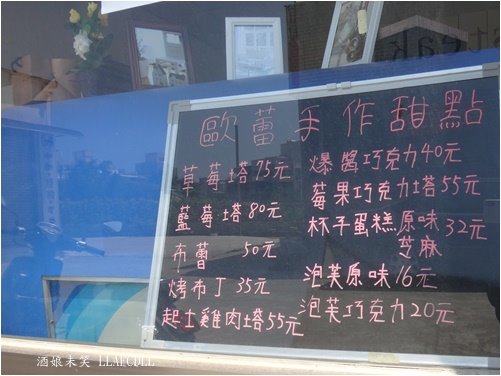 歐蕾手作甜點
草莓塔75元
藍莓塔80元
布蕾 50元
烤布丁 35元
起士雞肉塔55元
爆醬巧克力40元
莓果巧克力塔55元
杯子蛋糕原味32元
芝麻
泡芙原味16元
泡芙巧克力20元
酒娘未笑 LLAFCDLL